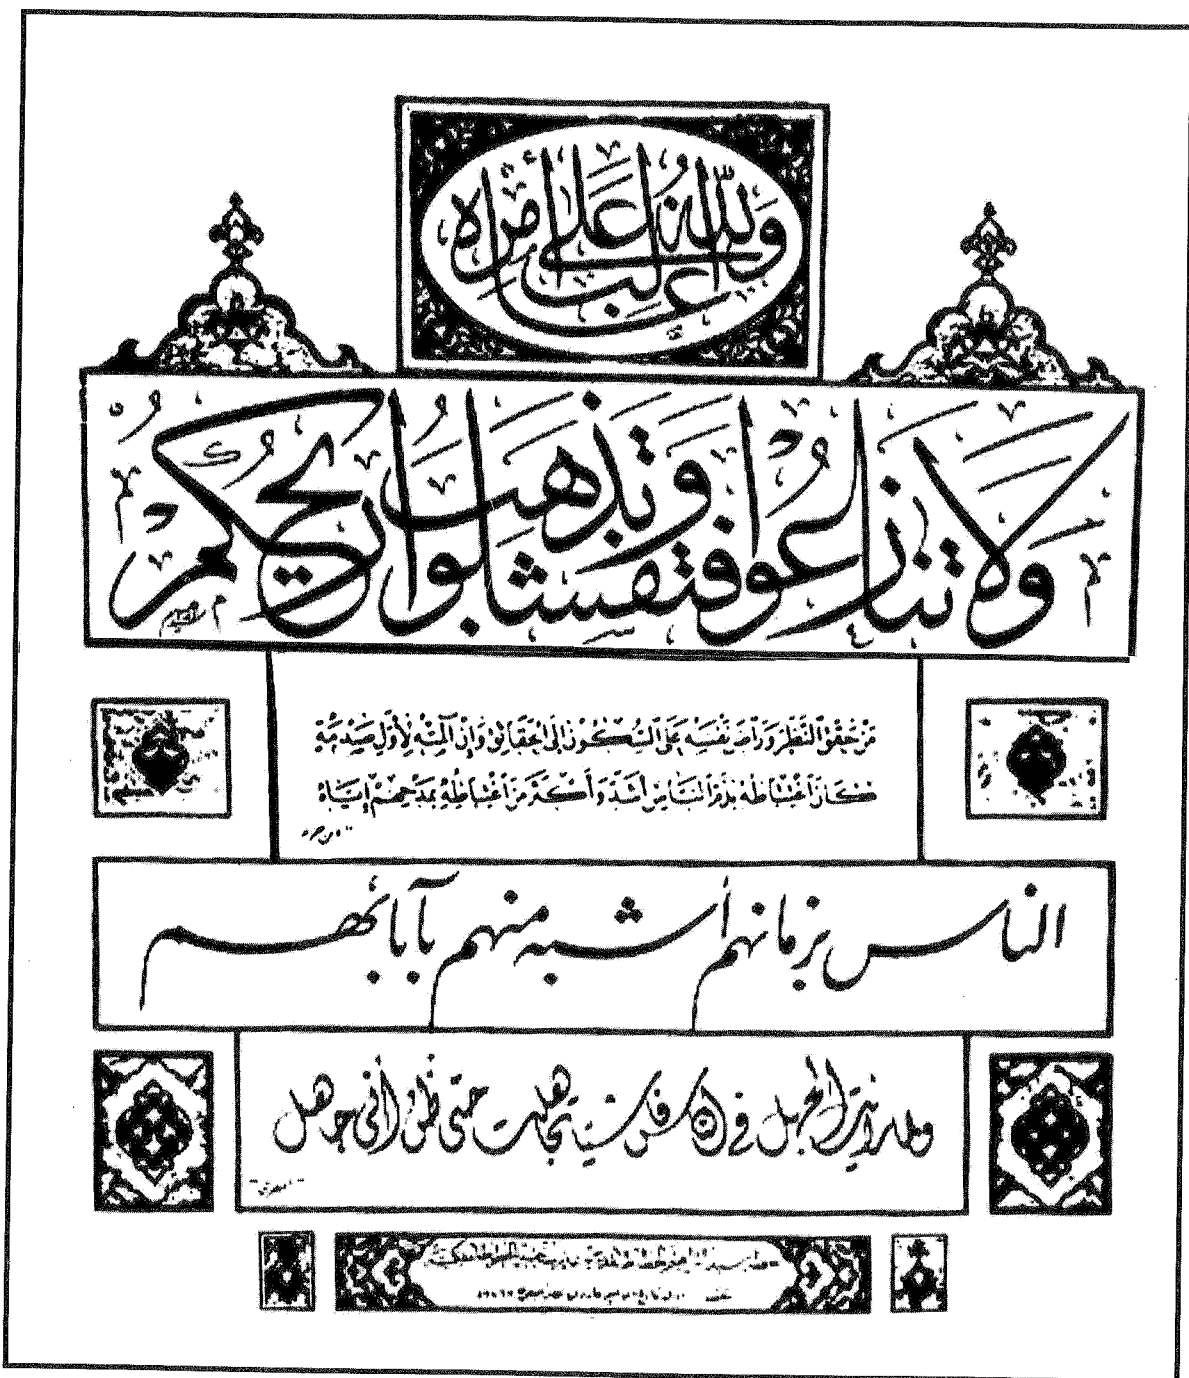 وَاللهُ غَالِبٌ عَلَى أَمْرِهِ
وَلَا تَنَازَعُوا فَتَفْشَلُوا وَتَذْهَبَ رِيحُكُمْ
مَنْ حَقَّقَ النَّظَرَ وَرَاضَ نَفْسَهُ عَلَى السُّكُونِ إِلَى الْحَقَائِقِ وَإِنْ آلَمَتْهُ لِأَوَّلِ صَدْمَةٍ
كَانَ اغْتِبَاطُهُ بِذَمِّ النَّاسِ أَشَدَّ وَأَكْثَرَ مِنْ اغْتِبَاطِهِ بِمَدْحِهِمْ إِيَّاهُ
الناس بزمانهم أشبه منهم بآبائهم
ولما رأيت الجهل في الناس فاشيا تجاهلت حتى ظن أني جاهل
"المعري"